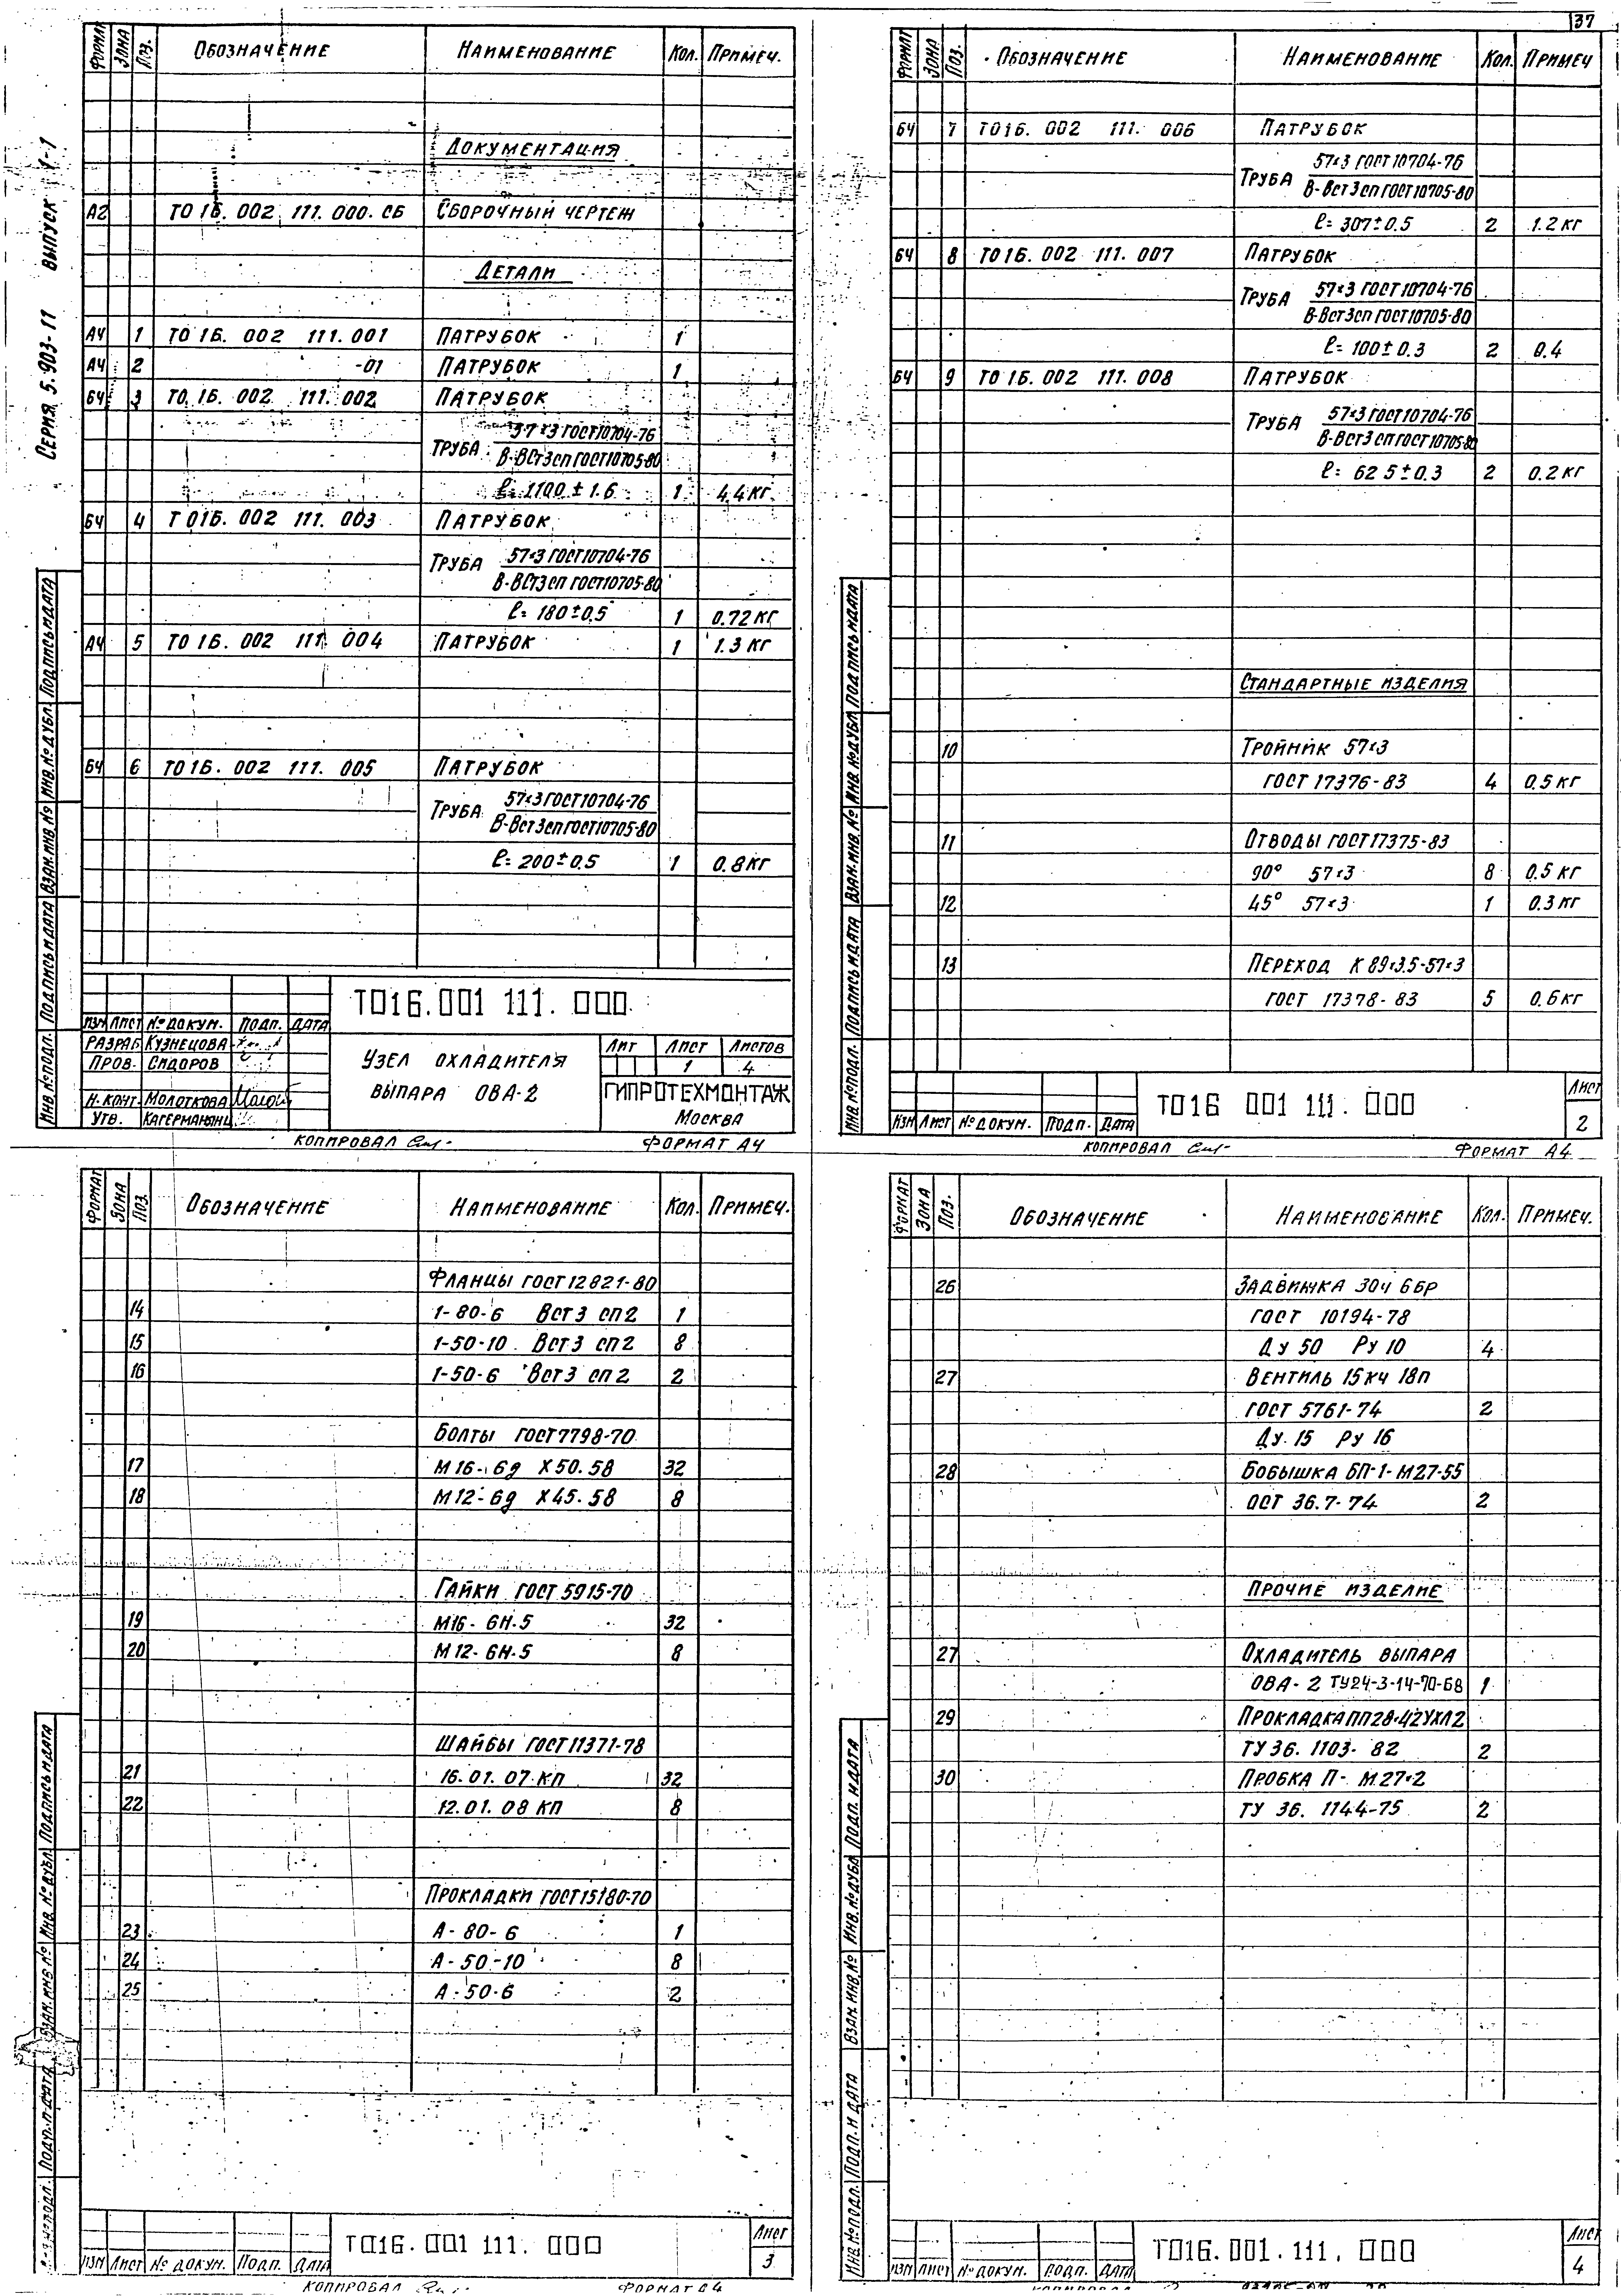 37
Серия 5.903-11 выпуск 1-1
Формат Зона Поз. Обозначение Наименование Кол. Примеч.
Документация
А2 ТО 16. 002 111. 000. СБ Сборочный чертеж
Детали
А4 1 ТО 16. 002 111. 001 Патрубок 1
А4 2 -01 Патрубок 1
БЧ 3 ТО 16. 002 111. 002 Патрубок
57×3 ГОСТ 10704-76
Труба
В-ВСт3сп ГОСТ 10705-80
ℓ= 1100 ± 1.6 1 4.4 кг
БЧ 4 ТО16. 002 111. 003 Патрубок
57×3 ГОСТ 10704-76
Труба
В-ВСт3сп ГОСТ 10705-80
ℓ= 180±0,5 1 0.72 кг
А4 5 ТО 16. 002 111. 004 Патрубок 1 1.3 кг
БЧ 6 ТО16. 002 111. 005 Патрубок
57×3 ГОСТ 10704-76
Труба
В-ВСт3сп ГОСТ 10705-80
ℓ= 200±0,5 1 0.8 кг
ТО16.001 111. 000
Изм Лист № докум. Подп. Дата
Разраб. Кузнецова
Пров. Сидоров
Н. конт. Молоткова
Утв.
Узел охладителя
выпара ОВА-2
Лит Лист Листов
1 4
ГИПРОТЕХМОНТАЖ
Москва
Инв. № подл. Подпись и дата Взам. инв. № Инв. № дубл. Подпись и дата
Копировал Формат А4
Формат Зона Поз. Обозначение Наименование Кол. Примеч
БЧ 7 ТО16. 002 111. 006 Патрубок
57×3 ГОСТ 10704-76
Труба
В-ВСт3сп ГОСТ 10705-80
ℓ= 307±0.5 2 1.2 кг
БЧ 8 ТО16. 002 111. 007 Патрубок
57×3 ГОСТ 10704-76
Труба
В-ВСт3сп ГОСТ 10705-80
ℓ= 100± 0.3 2 0.4
БЧ 9 ТО 16. 002 111. 008 Патрубок
57×3 ГОСТ 10704-76
Труба
В-ВСт3сп ГОСТ 10705-80
ℓ= 62 5±0.3 2 0.2 кг
Стандартные изделия
10 Тройник 57×3
ГОСТ 17376-83 4 0.5 кг
11 Отводы ГОСТ 17375-83
90° 57×3 8 0.5 кг
12 45° 57×3 1 0.3 кг
13 Переход К 89×3.5-57×3
ГОСТ 17378-83 5 0.6 кг
ТО16 001 111. 000
Изм Лист № докум. Подп. Дата
Лист
2
Инв. № подл. Подпись и дата Взам. инв. № Инв. № дубл. Подпись и дата
Копировал Формат А4
Формат Зона Поз. Обозначение Наименование Кол. Примеч.
Фланцы ГОСТ 12821-80
14 1-80-6 ВСт3 сп2 1
15 1-50-10 ВСт3 сп2 8
16 1-50-6 ВСт3 сп2 2
Болты ГОСТ 7798-70
17 М16-6g Х50.58 32
18 М12-6g Х45.58 8
Гайки ГОСТ 5915-70
19 М16-6Н.5 32
20 М12-6Н.5 8
Шайбы ГОСТ 11371-78
21 16.01.07 КП 32
22 12.01.08 КП 8
Прокладки ГОСТ 15180-70
23 А-80-6 1
24 А-50-10 8
25 А-50-6 2
ТО16.001 111. 000
Изм Лист № докум. Подп. Дата
Лист
3
Подп. и дата Взам. инв. № Инв. № дубл. Подпись и дата
Копировал Формат А4
Формат Зона Поз. Обозначение Наименование Кол. Примеч.
26 Задвижка 30ч 6бр
ГОСТ 10194-78
Ду 50 Ру 10 4
27 Вентиль 15кч 18п
ГОСТ 5761-74 2
Ду 15 Ру 16
28 Бобышка БП-1-М27-55
ОСТ 36.7-74 2
Прочие изделие
27 Охладитель выпара
ОВА-2 ТУ24-3-14-70-68 1
29 Прокладка ПП28×42УХЛ2
ТУ 36. 1103-82 2
30 Пробка П-М27×2
ТУ 36. 1144-75 2
ТО16.001.111. 000
Изм Лист № докум. Подп. Дата
Лист
4
Инв. № подл. Подп. и дата Взам. инв. № Инв. № дубл. Подп. и дата